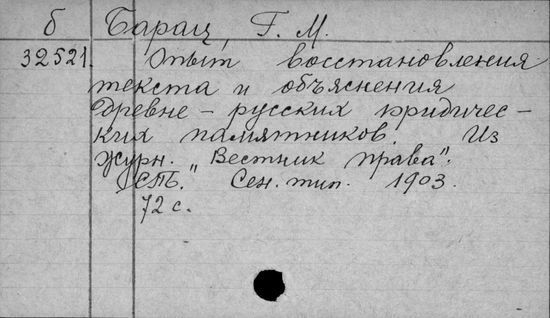 б Барац, Г. М.
32521. Опыт восстановления
текста и объяснения
древне-русских юридичес-
ких памятников. Из
журн. "Вестник права".
СПБ. Сен. тип. 1903.
72 с.